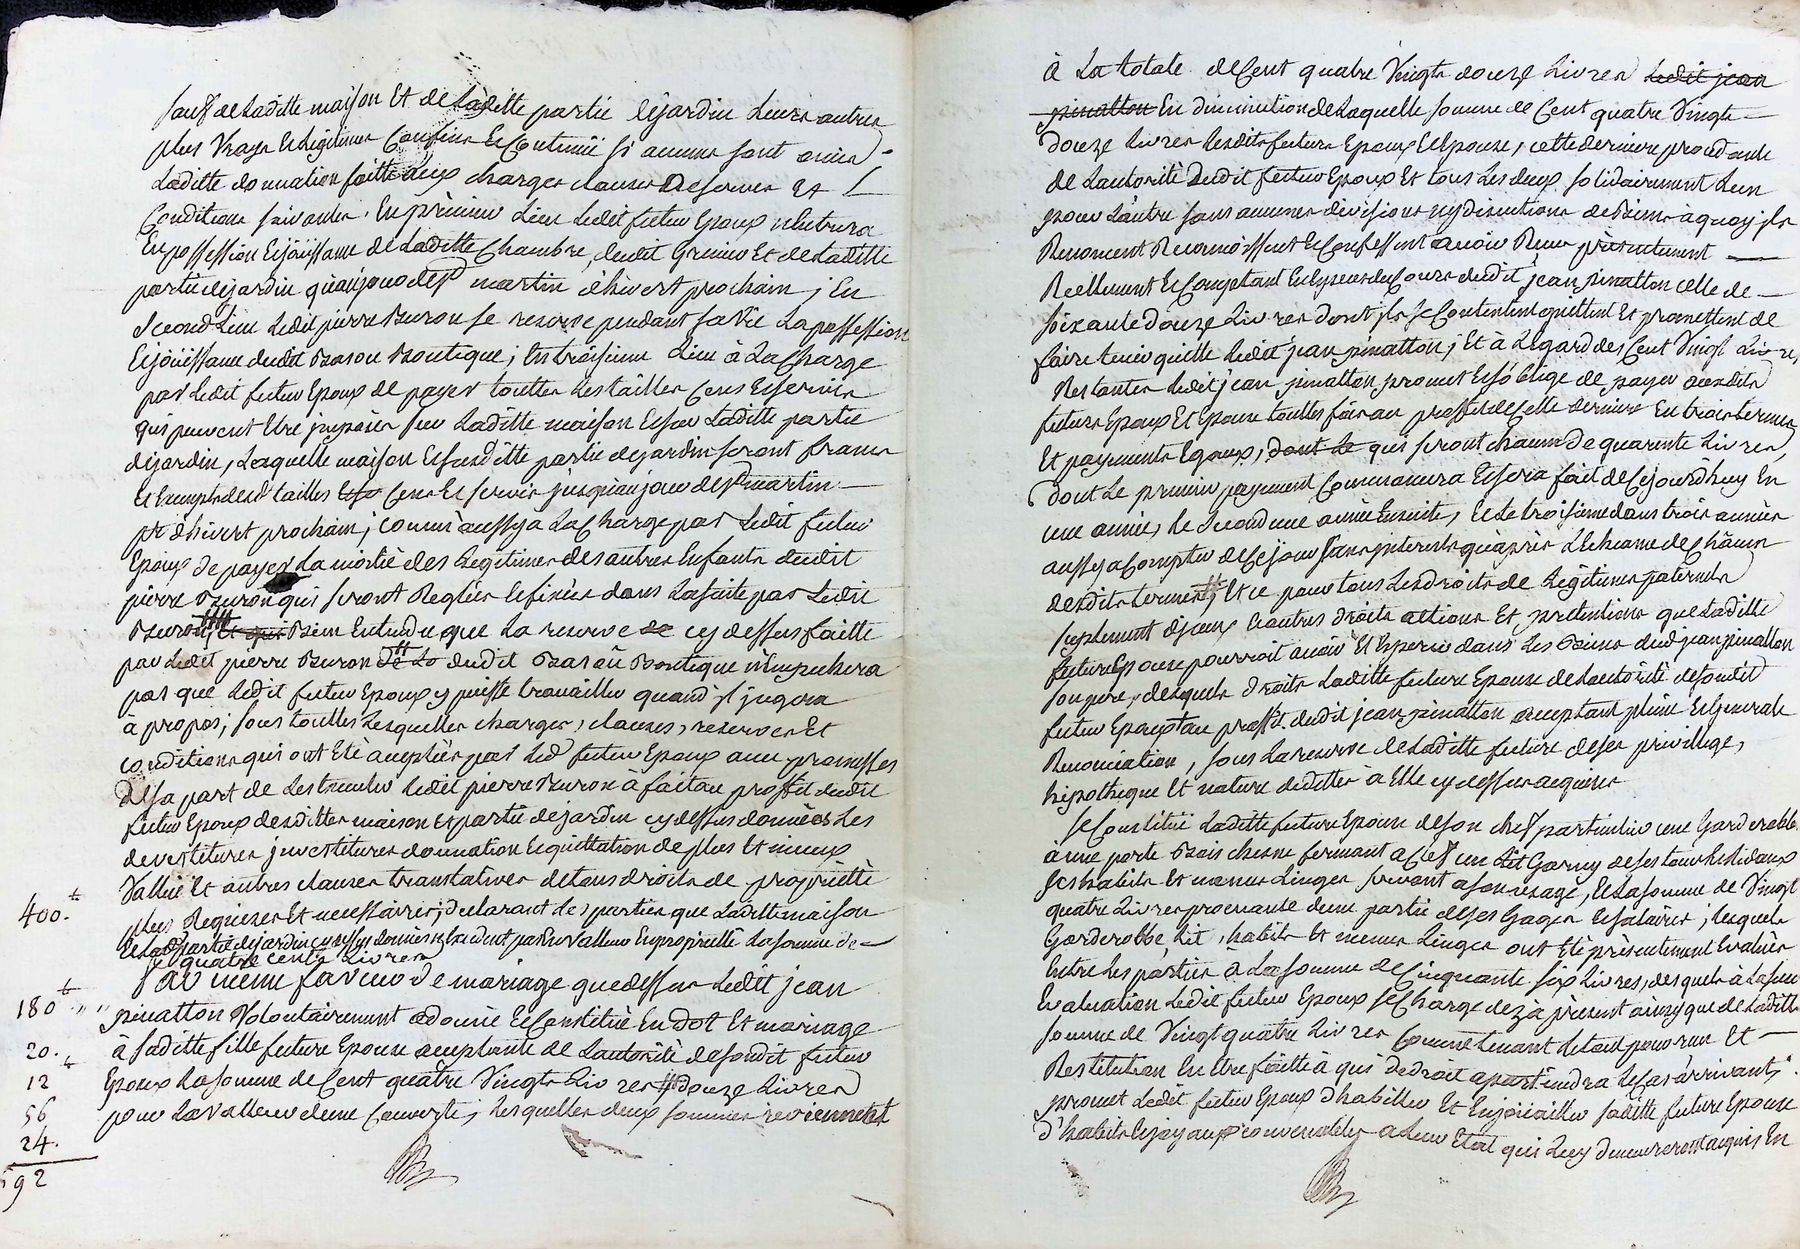 sauf de Laditte maison Et de Laditte partie dejardin Leurs autres
plus Vrays Et legitimes Confins Et Contenüe si aucuns sont
Laditte donnation faitte aux charges clauses Reserves Et
Conditions suivantes. En prémier Lieu Ledit futur Epoux n'entrera
En possession Et joüissance de Laditte Chambre, dudit Grenier Et de Laditte
partie dejardin qu'aujour de st martin d'hivert prochain; En
second Lieu Ledit pierre Buron se reserve pendant sa Vie La possession
Et joüissance dudit Bas ou Boutique; En troisieme Lieu à La Charge
par Ledit futur Epoux de payer touttes Les tailles Cens Et servis
qui peuvent Etre imposées sur Laditte maison Et sur Laditte partie
dejardin, Laquelle maison Et susditte partie dejardin seront francs
Et Exempts desd tailles Cens Et servis jusqu'au jour de st martin
d'hivert prochain; comm'aussy a La Charge par Ledit futur
Epoux de payer La moitié des Legitimes des autres Enfants dudit
pierre Buron qui seront Reglées Et fixées dans La suitte par Ledit
Buron, Et qui Bien Entendu que La reserve de cy dessus faitte
par Ledit pierre Buron de La dudit Bas où Boutique n'Empechera
pas que Ledit futur Epoux y puisse travailler quand il jugera
à propos; sous touttes Lesquelles charges, clauses, reserves Et
conditions qui ont Eté acceptées par Led futur Epoux avec promesses
de sa part de Les Executer Ledit pierre Buron à fait au proffit dudit
futur Epoux desdittes maison Et partie dejardin cy dessus données Les
devestitures investitures donnation Et quittation de plus Et mieux
Vallüe Et autres clauses translatives de tous droits de proprieté
400.tt
plus Requises Et necessaires; declarant Les parties que Laditte maison
Et Lad partie dejardin cy dessus données n'Excedent pas En Valleur En proprieté La somme de
quatre cents Livres
au même faveur de mariage que dessus Ledit jean
180tt
pinatton Volontairement a donné Et Constitué En dot Et mariage
20.
à saditte fille future Epouse acceptante de Lautorité de sondit futur
12
Epoux La somme de Cent quatre Vingts Livres Et douze Livres
56
pour La valleur d'une Couverte; Lesquelles deux sommes reviennent
24.
92
à La totale de Cent quatre Vingts douze Livres Ledit jean
pinatton En diminution de Laquelle somme de Cent quatre Vingts
douze Livres Lesdits futurs Epoux Et Epouse, cette derniere procedante
de Lautorité dudit futur Epoux Et tous Les deux solidairement L'un
pour L'autre sans aucunes divisions ny discutions de Biens à quoy ils
Renoncent Reconnoissent Et Confessent avoir Reçu présentement
Reellement Et Comptant En Especes du Cours dudit jean pinatton celle de
soixante douze Livres dont ils se Contentent quittent Et promettent de
faire tenir quitte Ledit jean pinatton; Et à L'égard des Cent Vingt Livres
Restantes Ledit jean pinatton promet Et s'oblige de payer auxdits
futurs Epoux Et Epouse touttes fois au proffit de Cette derniere En trois termes
Et payements Egaux, dont Le qui seront chacun de quarante Livres,
dont Le premier payement Commencera Et sera fait de Cejourd'huy En
une année, Le second une année Ensuitte, Et Le troisieme dans trois années
aussy a Compter de Cejour sans interets qu'après L'Echeance de Châcun
desdits termes; Et ce pour tous Les droits de Légitimes paternels
suplement d'iceux Et autres droits actions Et prétentions que Laditte
future Epouse pourroit avoir Et Esperer dans Les Biens dud jean pinatton
son pere, desquels droits Laditte future Epouse de Lautorité de sondit
futur Epoux au proffit dudit jean pinatton acceptant pleine Et Generale
Renonciation, sous La reserve de Laditte future de ses privillege,
hipotheque Et nature de dettes à Elle cy dessus acquises
se Constitüe Laditte future Epouse de son chef particulier une Garderobbe
à une porte Bois chesne fermant a Clef un Lit Garny de ses tours Et rideaux
ses habits Et menus Linges servant a son usage, Et La somme de Vingt
quatre Livres procenante d'une partie de ses Gages Et salaires; Lesquels
Garderobbe, Lit, habits Et menus Linges ont Eté présentement Evalués
Entre Les parties à La somme de Cinquante six Livres, desquels à La susd
Evaluation Ledit futur Epoux se Charge dez à présent ainsy que de Laditte
somme de Vingt quatre Livres Comme tenant Le tout pour reçu Et
Restitution En Etre faitte à qui de droit apartiendra Le Cas arrivant;
promet Ledit futur Epoux d'habiller Et Enjoüailler saditte future Epouse
d'habits Et joyaux convenables a Leur Etat qui Luy demeureront acquis En